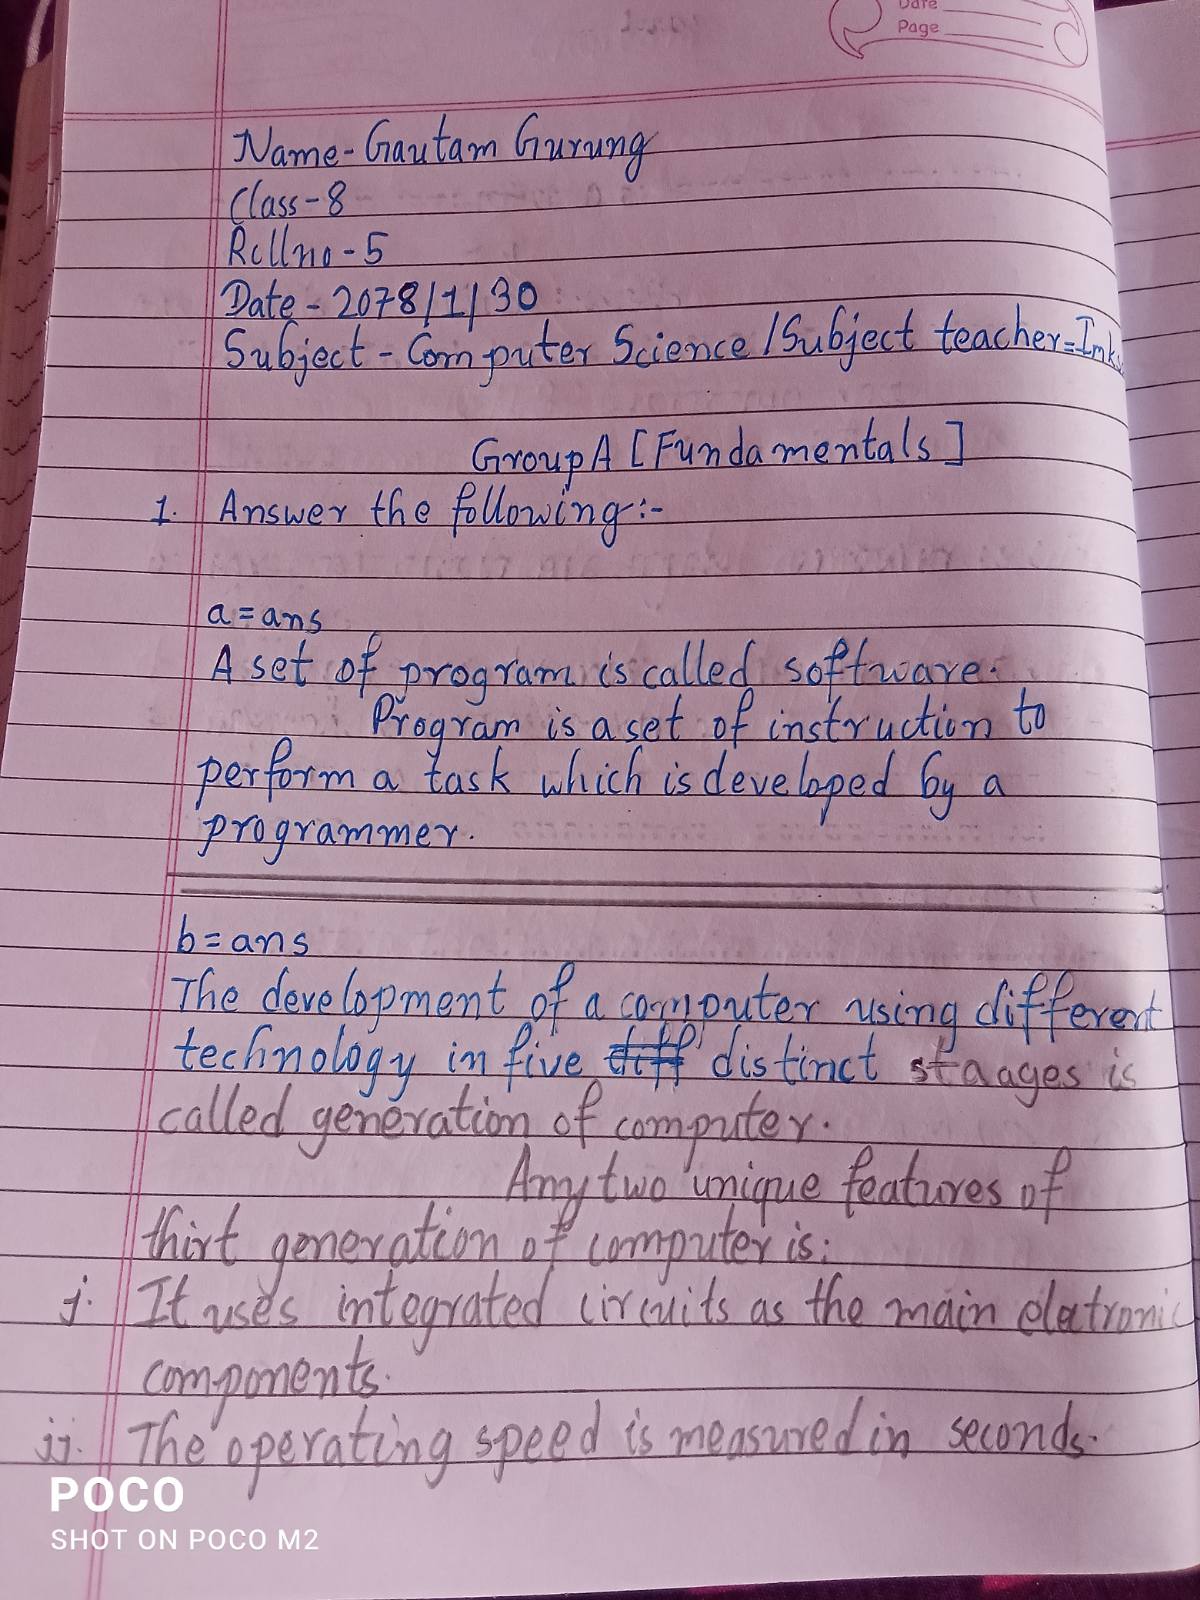 Date
Page
Name-Gautam Gurung
Class-8
Rollno-5
Date-2078/1/30
Subject-Computer Science/Subject teacher=
Group A [Fundamentals]
1. Answer the following:-
a=ans
A set of program is called software.
Program is a set of instruction to
perform a task which is developed by a
programmer.
b=ans
The development of a computer using different
technology in five diff distinct staages is
called generation of computer.
Any two unique features of
thirt generation of computer is:
i. It uses integrated circuits as the main eletronic
components.
ii. The operating speed is measured in seconds.
POCO
SHOT ON POCO M2